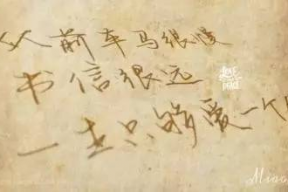 从前车马很慢
书信很远
一生只够爱一个